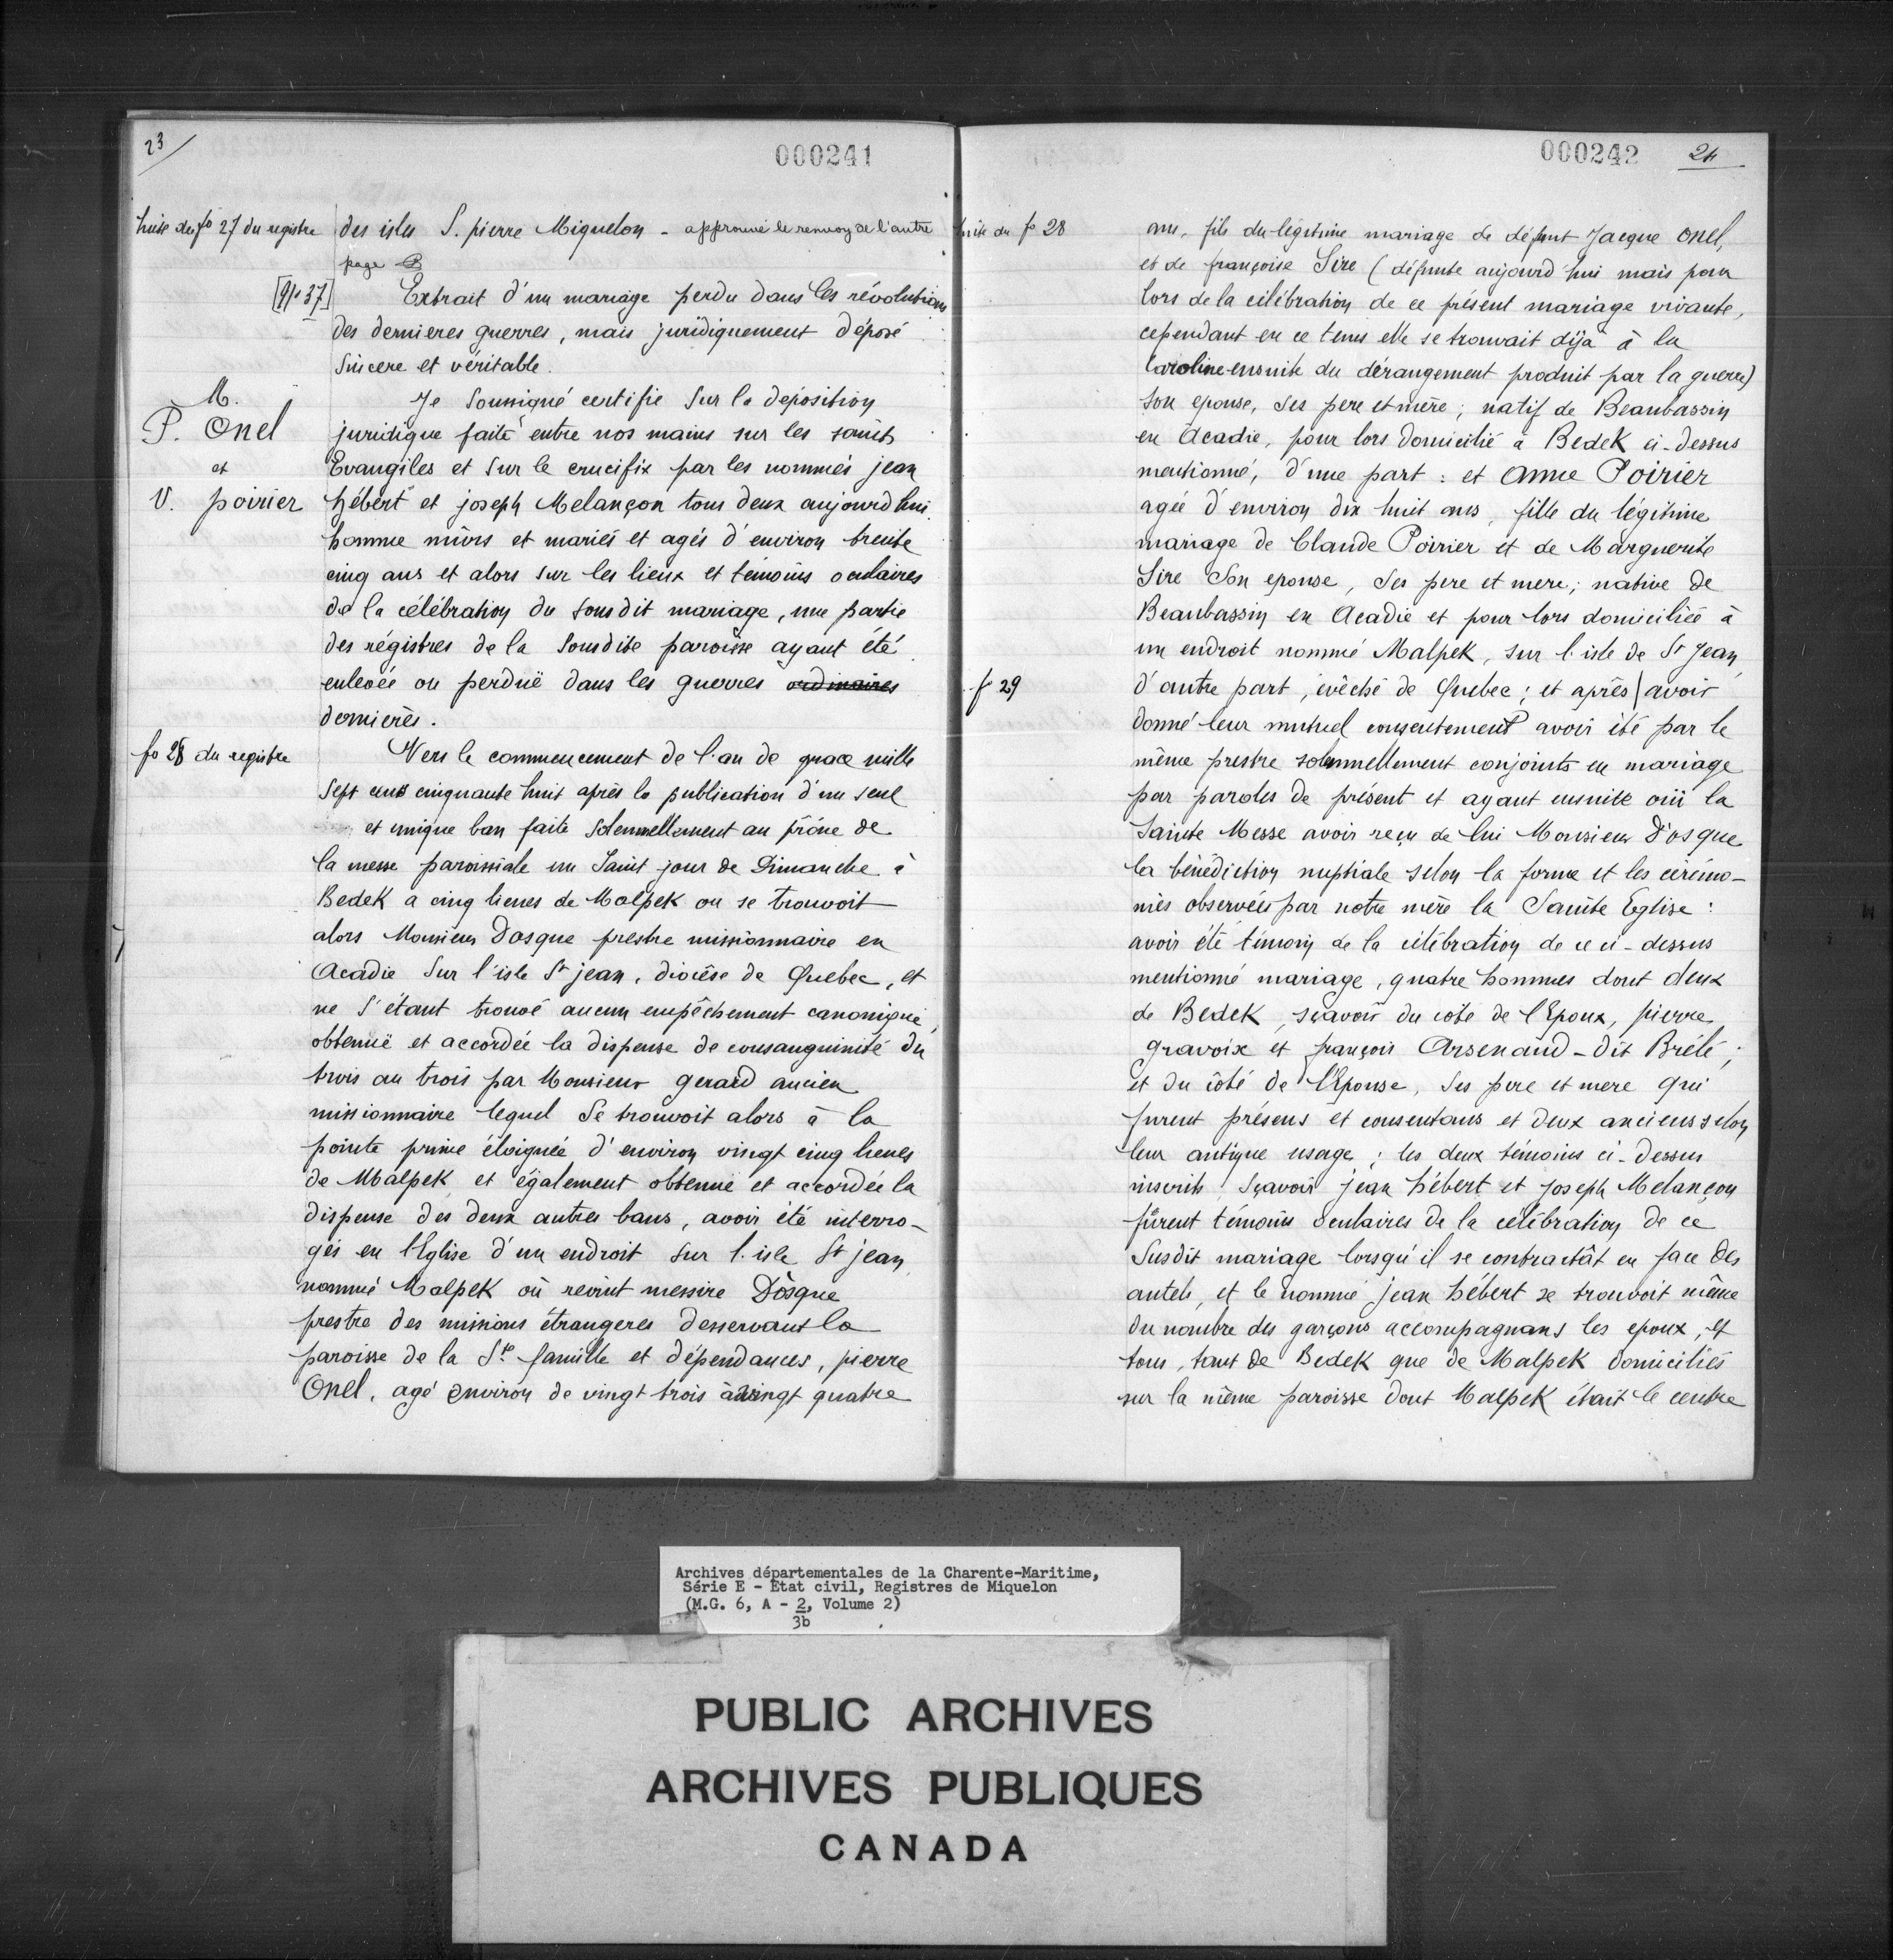 23
000241
suite du fo 27 du registre
des isles S. pierre Miquelon - approuvé le renvoy de l'autre
page
[No 37]
Extrait d'un mariage perdu dans les révolutions
des dernieres guerres, mais juridiquement déposé
sincere et véritable.
M.
P. Onel
et
V. poirier
Je soussigné certifie sur la déposition
juridique faite entre nos mains sur les saints
Evangiles et sur le crucifix par les nommés jean
hébert et joseph Melançon tous deux aujourd'hui
homme mûrs et mariés et agés d'environ trente
cinq ans et alors sur les lieux et témoins oculaires
de la célébration du sousdit mariage, une partie
des régistres de la sousdite paroisse ayant été
enlevée ou perdüe dans les guerres ordinaires
dernieres.
fo 28 du registre
Vers le commencement de l'an de grace mille
sept cens cinquante huit après la publication d'un seul
et unique ban faite solemnellement au prône de
la messe paroissiale un Saint jour de Dimanche à
Bedek a cinq lieues de Malpek ou se trouvoit
alors Monsieur Dosque prestre missionnaire en
Acadie sur l'isle St jean, diocêse de Quebec, et
ne s'étant trouvé aucun empêchement canonique,
obtenüe et accordée la dispense de consanguinité du
trois au trois par Monsieur gerard ancien
missionnaire lequel se trouvoit alors à la
pointe prime éloignée d'environ vingt cinq lieues
de Malpek et également obtenue et accordée la
dispense des deux autres bans, avoir été interro-
gés en l'Eglise d'un endroit sur l'isle St jean
nommé Malpek où revint messire Dosque
prestre des missions étrangeres desservant la
paroisse de la Ste famille et dépendances, pierre
Onel, agé environ de vingt trois à vingt quatre
000242
24
suite du fo 28
ans, fils du légitime mariage de défunt Jacque Onel,
et de françoise Sire (défunte aujourd'hui mais pour
lors de la célébration de ce présent mariage vivante,
cependant en ce tems elle se trouvait déja à la
Caroline ensuite du dérangement produit par la guerre)
son epouse, ses pere et mère; natif de Beaubassin
en Acadie, pour lors domicilié à Bedek ci-dessus
mentionné, d'une part : et Anne Poirier
agée d'environ dix huit ans, fille du légitime
mariage de Claude Poirier et de Marguerite
Sire son epouse, ses pere et mere; native de
Beaubassin en Acadie et pour lors domiciliée à
un endroit nommé Malpek, sur l'isle de St Jean,
f 29
d'autre part, évêché de Quebec; et après | avoir
donné leur mutuel consentement avoir été par le
même prestre solemnellement conjoints en mariage
par paroles de présent et ayant ensuite oüi la
Sainte Messe avoir reçu de lui Monsieur Dosque
la bénédiction nuptiale selon la forme et les cérémo-
nies observées par notre mère la Sainte Eglise :
avoir été témoin de la célébration de ce ci-dessus
mentionné mariage, quatre hommes dont deux
de Bedek, sçavoir du coté de l'Epoux, pierre
gravoix et françois Arsenaud-dit Brélé;
et du côté de l'Epouse, ses pere et mere qui
furent présens et consentans et deux anciens selon
leur antique usage; les deux témoins ci-dessus
inscrits sçavoir jean hébert et joseph Melançon
fûrent témoins oculaires de la célébration de ce
susdit mariage lorsqu'il se contractât en face des
autels, et le nommé jean hébert se trouvoit même
du nombre des garçons accompagnans les epoux, et
tous, tant de Bedek que de Malpek domiciliés
sur la même paroisse dont Malpek était le centre
Archives départementales de la Charente-Maritime,
Série E - Etat civil, Registres de Miquelon
(M.G. 6, A - 2, Volume 2)
3b
PUBLIC ARCHIVES
ARCHIVES PUBLIQUES
CANADA